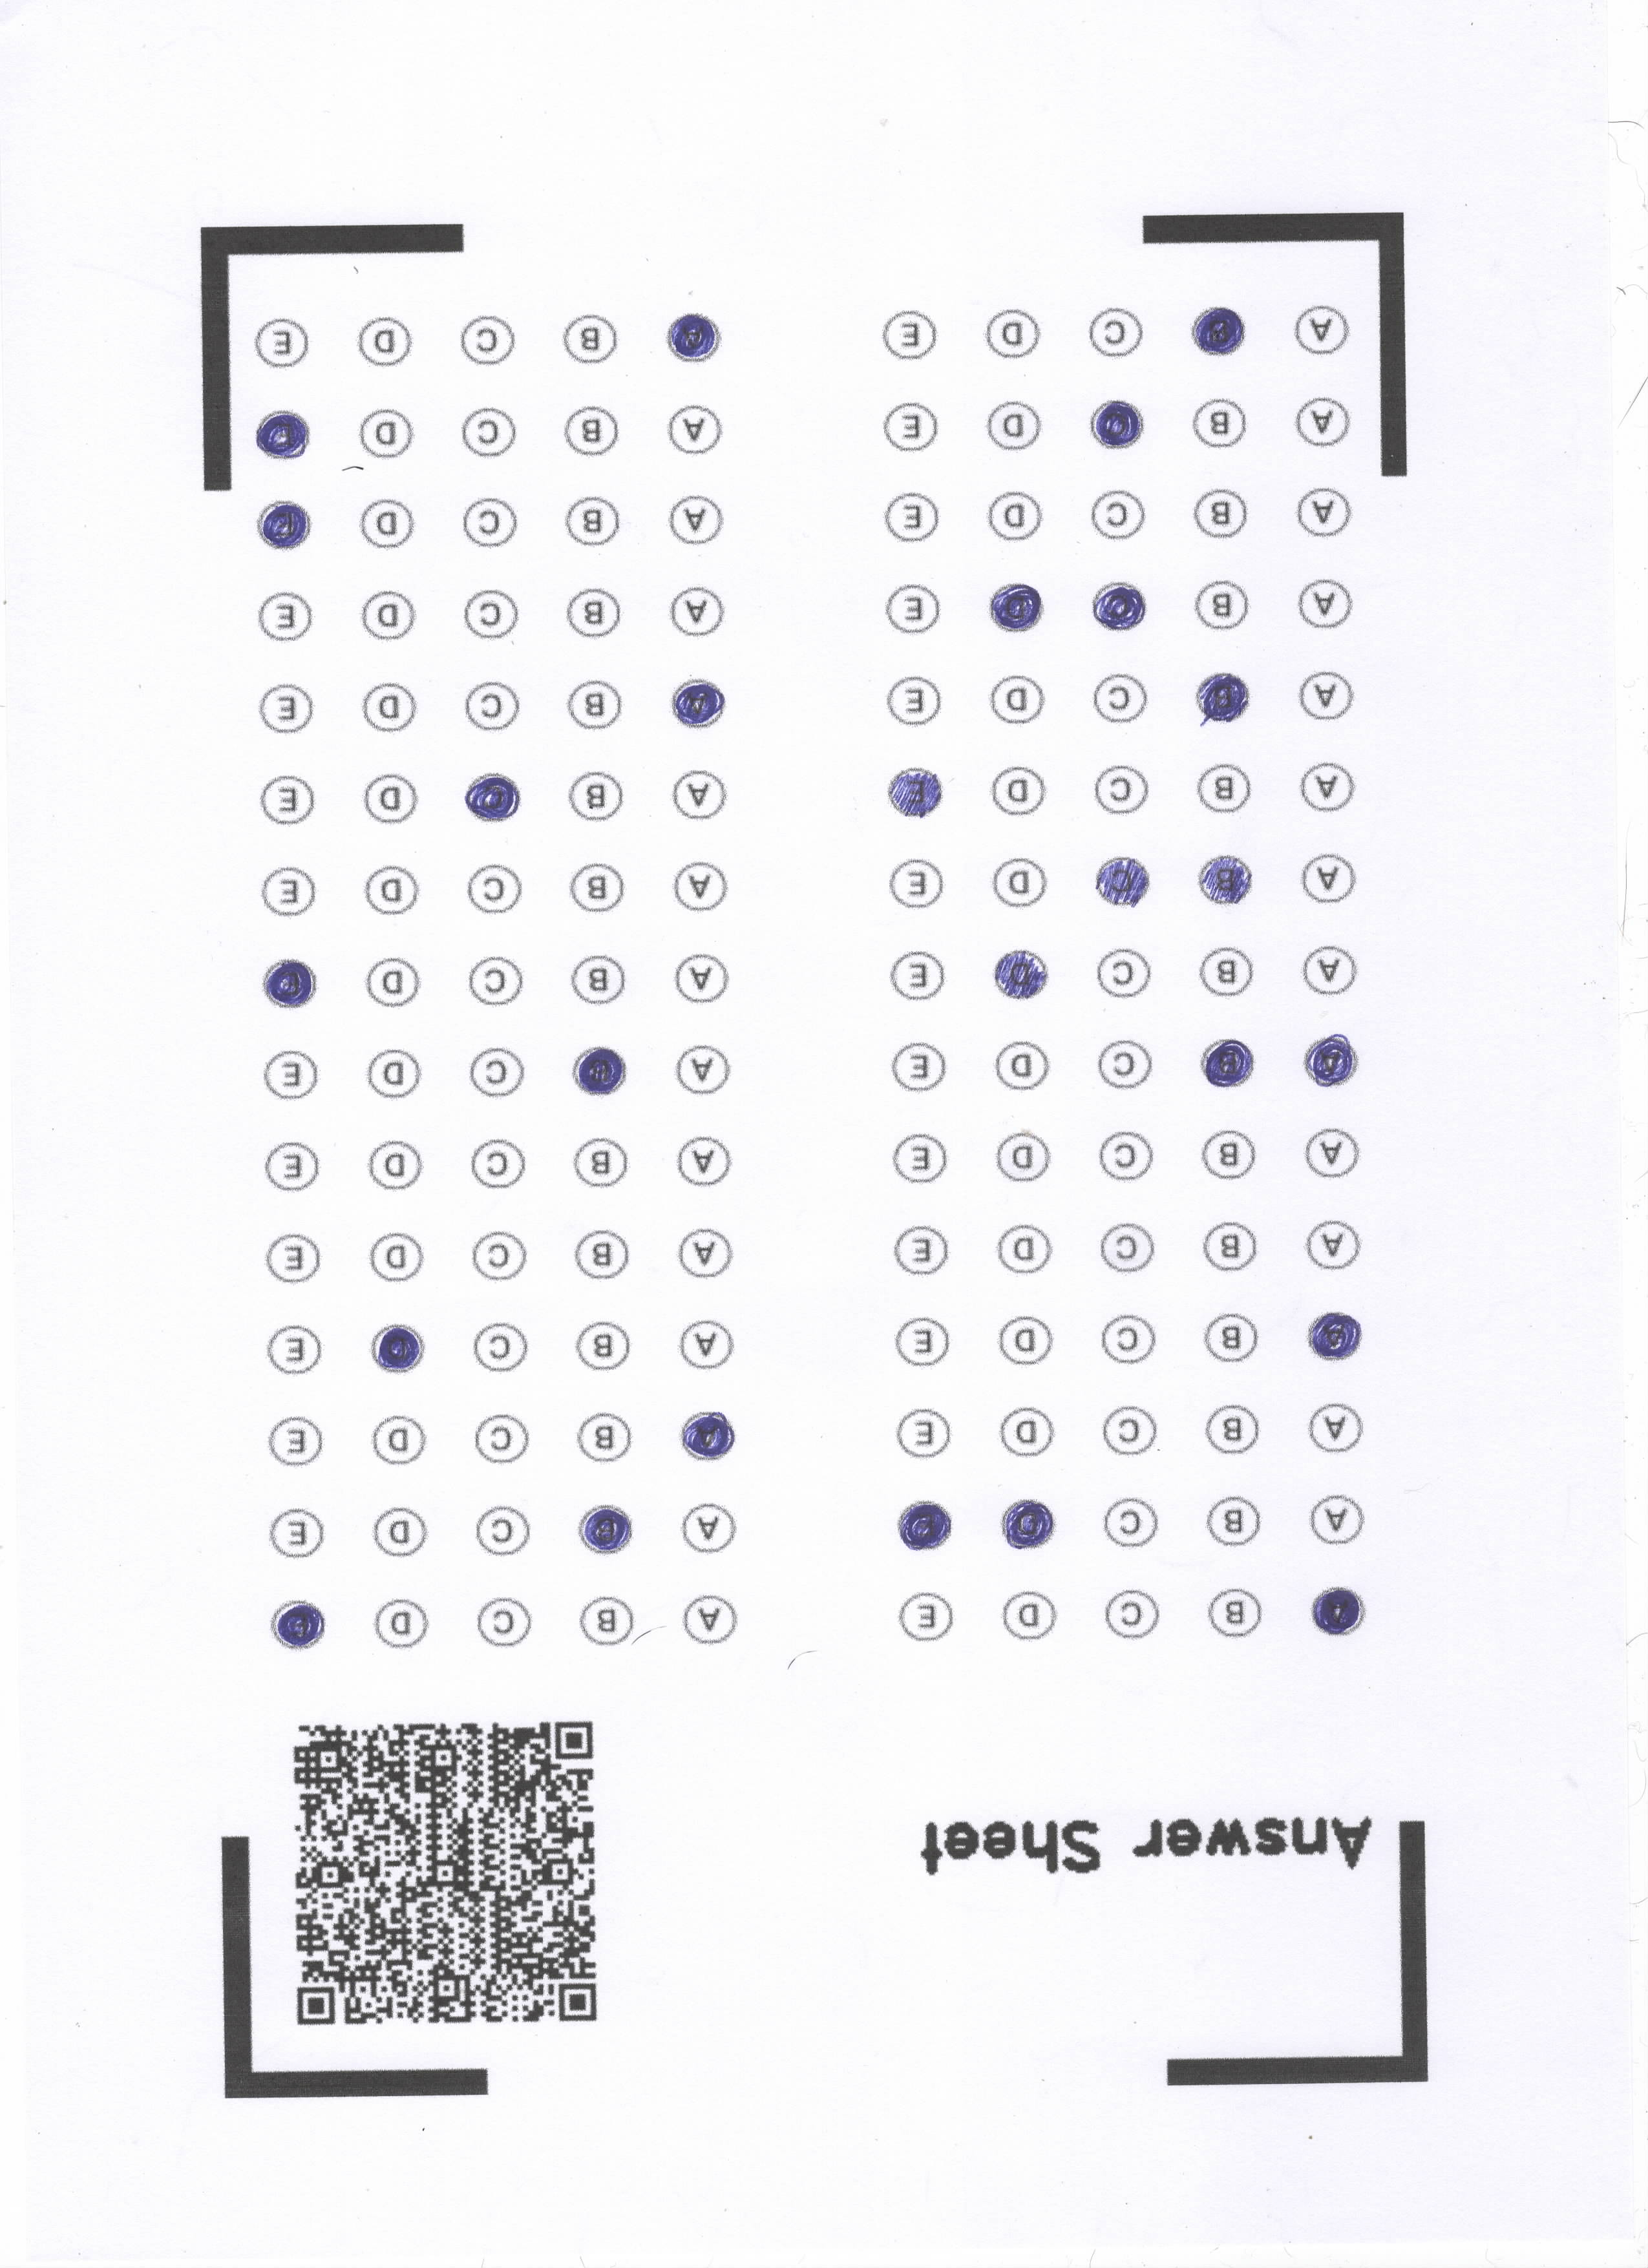 Answer Sheet
A B C D E A B C D E
A B C D E A B C D E
A B C D E A B C D E
A B C D E A B C D E
A B C D E A B C D E
A B C D E A B C D E
A B C D E A B C D E
A B C D E A B C D E
A B C D E A B C D E
A B C D E A B C D E
A B C D E A B C D E
A B C D E A B C D E
A B C D E A B C D E
A B C D E A B C D E
A B C D E A B C D E